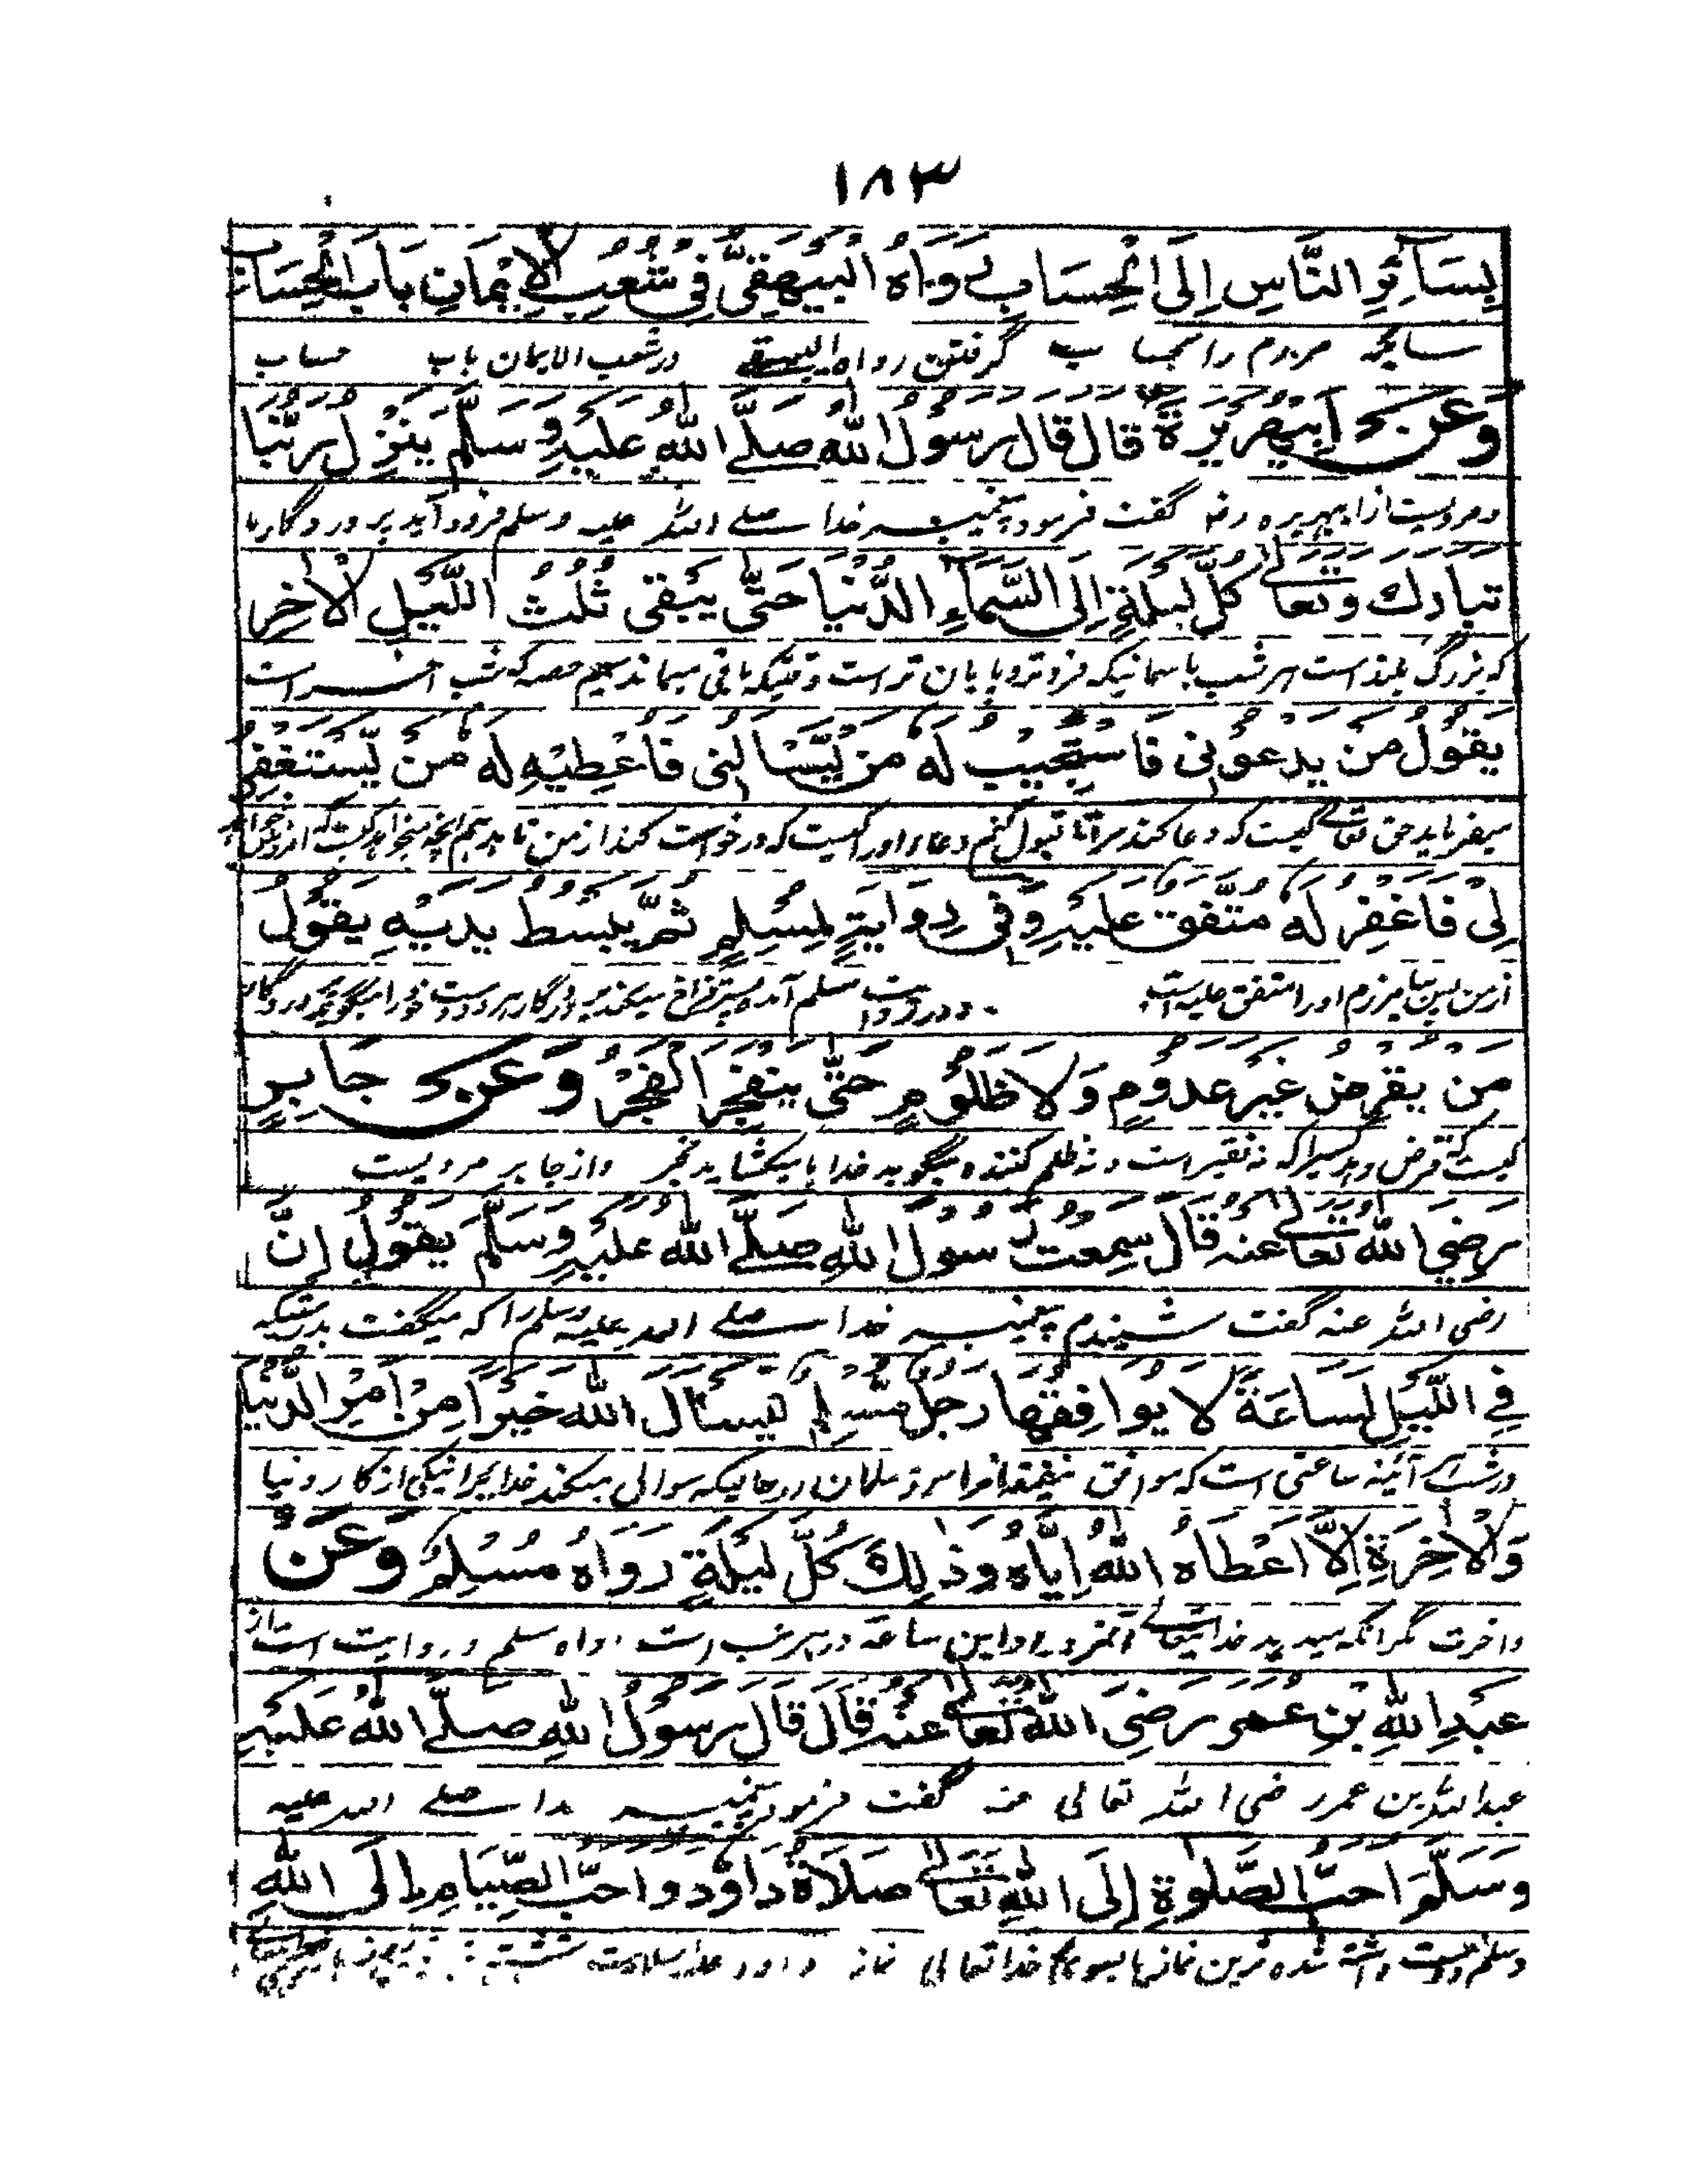 ١٨٣
بِسَآئِرِ النَّاسِ اِلَى الْحِسَابِ رَوَاهُ الْبَيْهَقِيُّ فِي شُعَبِ الْاِيْمَانِ بَابِ الْحِسَابِ
مردم را بحساب گرفتن رواه البیهقی در شعب الایمان باب حساب
وَعَنْ اَبِيْ هُرَيْرَةَ قَالَ قَالَ رَسُوْلُ اللهِ صَلَّے اللهُ عَلَيْهِ وَسَلَّمَ يَنْزِلُ رَبُّنَا
ومرویست از ابیهریره رضه گفت فرمود پیغمبر خدا صلے الله علیه وسلم فرود آید پروردگار ما
تَبَارَكَ وَتَعَالٰے كُلَّ لَيْلَةٍ اِلَى السَّمَآءِ الدُّنْيَا حَتّٰى يَبْقٰى ثُلُثُ اللَّيْلِ الْاٰخِرِ
که بزرگ بلند است هر شب باسمانیکه فروتر است وقتیکه باقی میماند سیم حصه که شب آخر است
يَقُوْلُ مَنْ يَدْعُوْنِي فَاَسْتَجِيْبَ لَهُ مَنْ يَّسْاَلُنِي فَاُعْطِيَهِ لَهُ مَنْ يَّسْتَغْفِرُ
میفرماید حق تعالے کیست که دعا کند مرا تا قبول کنم دعاء او را کیست که درخواست کند از من تا بدهم
لِيْ فَاَغْفِرَ لَهُ مُتَّفَقٌ عَلَيْهِ وَفِي رِوَايَةٍ لِمُسْلِمٍ ثُمَّ يَبْسُطُ يَدَيْهِ يَقُوْلُ
از من پس بیامرزم او را متفق علیه است ودر روایت مسلم آمده
مَنْ يُقْرِضُ غَيْرَ عَدُوْمٍ وَلَا ظَلُوْمٍ حَتّٰى يَنْفَجِرَ الْفَجْرُ وَعَنْ جَابِرٍ
کیست که قرض دهد کسیرا که نه فقیر است ونه ظلم کننده میگوید خدا تا میکشاید فجر واز جابر مرویست
رَضِيَ اللهُ تَعَالٰے عَنْهُ قَالَ سَمِعْتُ رَسُوْلَ اللهِ صَلَّے اللهُ عَلَيْهِ وَسَلَّمَ يَقُوْلُ اِنَّ
رضی الله عنه گفت شنیدم پیغمبر خدا صلے الله علیه وسلم را که میگفت بدرستیکه
فِي اللَّيْلِ لَسَاعَةً لَا يُوَافِقُهَا رَجُلٌ مُّسْلِمٌ يَسْئَالُ اللهَ خَيْرًا مِنْ اَمْرِ الدُّنْيَا
در شب آئینه ساعتی است که موافق مسلمان در حالیکه سوالی میکند خدا نیکی از کار دنیا
وَالْاٰخِرَةِ اِلَّا اَعْطَاهُ اللهُ اِيَّاهُ وَذٰلِكَ كُلَّ لَيْلَةٍ رَوَاهُ مُسْلِمٌ وَعَنْ
واخرت مگر آنکه میدهد خدایتعالے واین ساعة در هر شب است رواه مسلم وروایت است از
عَبْدِ اللهِ بْنِ عُمَرَ رَضِيَ اللهُ تَعَالٰے عَنْهُ قَالَ قَالَ رَسُوْلُ اللهِ صَلَّے اللهُ عَلَيْهِ
عبد الله بن عمر رضی الله تعالی عنه گفت فرمود پیغمبر خدا صلے الله علیه
وَسَلَّمَ اَحَبُّ الصَّلٰوةِ اِلَى اللهِ تَعَالٰے صَلَاةُ دَاوُدَ وَاَحَبُّ الصِّيَامِ اِلَى اللهِ
وسلم دوست داشته شده ترین نمازها بسوی خدا تعالی نماز داود علیه السلام است